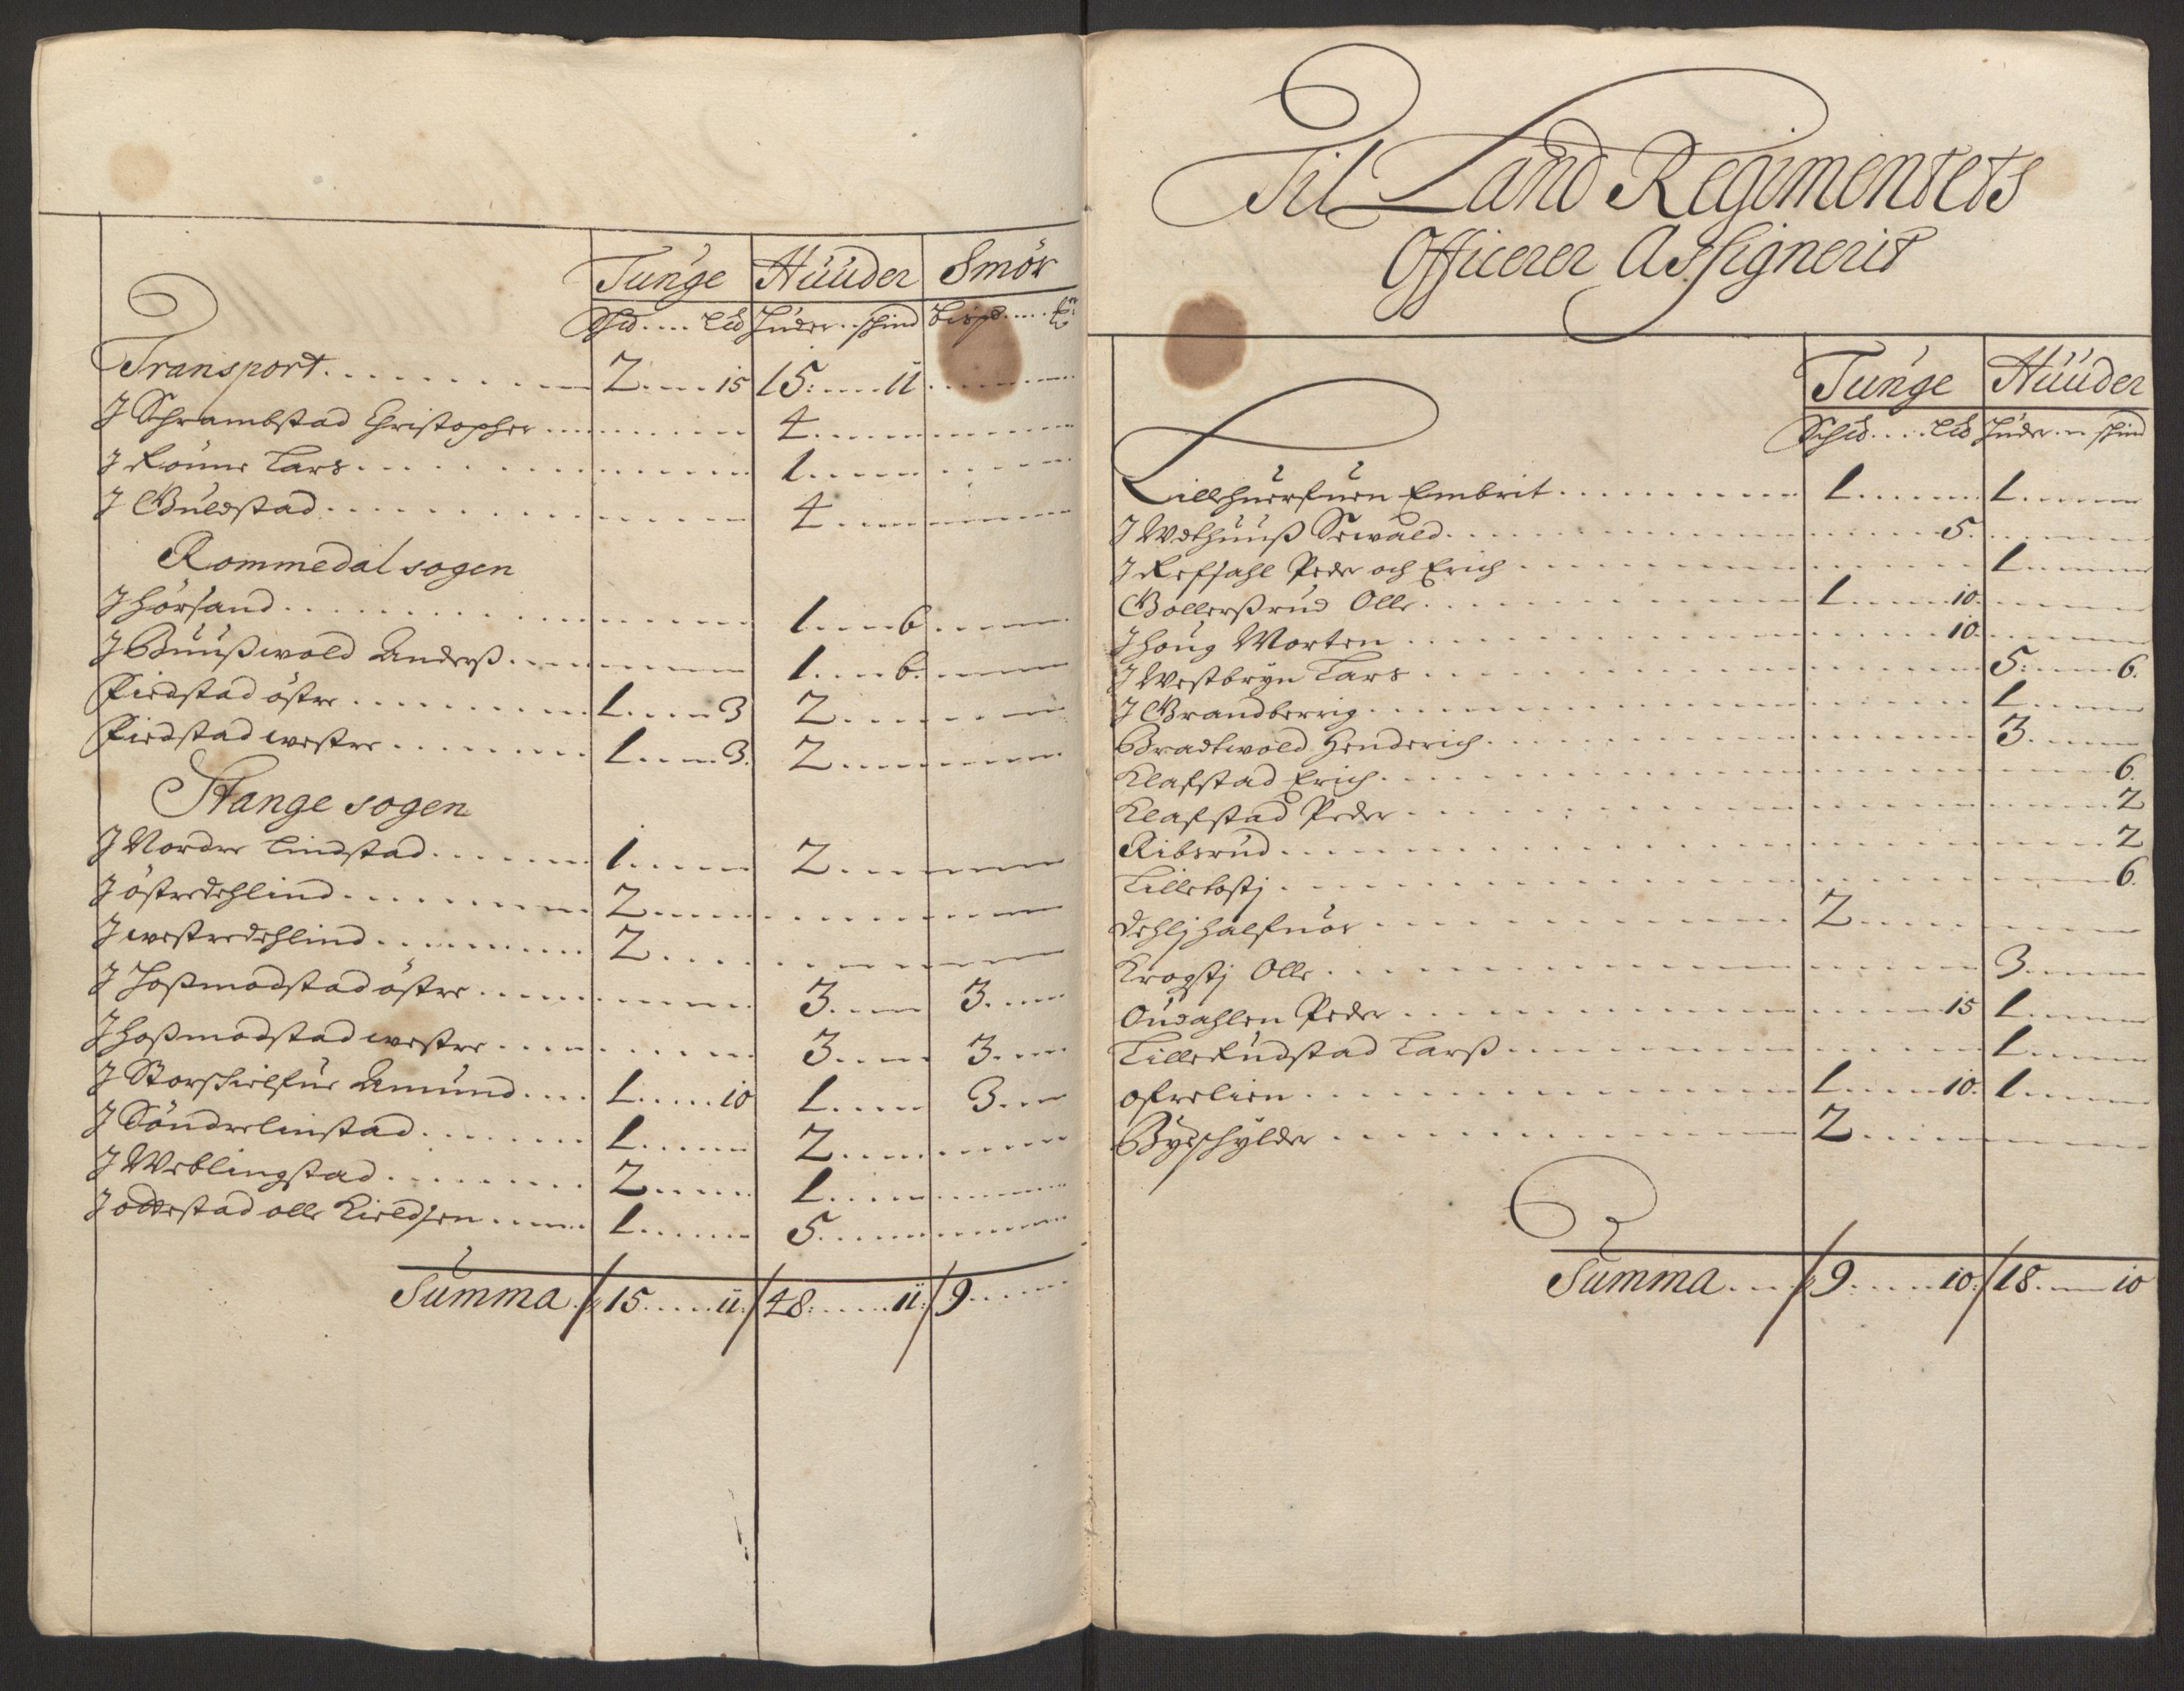 Tunge Huuder Smör
Shd .... Led Huder .. skind bispd ..... ℔:
Transport .......... 2 .... 15 15: ..... 11 ..........
J Schrambstad Christopher .......... 4 ..........
J Rönne Lars .......... 1 ..........
J Guldstad .......... 4 ..........
Rommedal sogen
J Hörsand .......... 1 .... 6 ..........
J Buußwold Anderß .......... 1 .... 6 ..........
Fiedstad östre .......... 1 .... 3 2 ..........
Fiedstad westre .......... 1 .... 3. 2 ..........
Stange sogen
J Nordre Lindstad .......... 1 ..... 2 ..........
J östredehlind .......... 2 ..........
J westredehlind .......... 2 ..........
J Hoßmodstad östre .......... 3 ..... 3 .....
J Hoßmodstad westre .......... 3 ..... 3 .....
J Storskielfue Amund .... 1 ..... 10 1 ..... 3 ...
J Söndrelinstad .......... 1 ..... 2 ..........
J Weblingstad .......... 2 ..... 1 ..........
J odtestad olle Kieldsen ..... 1 ..... 5 ..........
Summa . 15 ..... 11: 48: ..... 11: 9 .....
Til Land Regimentets
Officerer Assignerit
Tunge Huuder
Schd .... Led Huder .. skind
Lillehuerfuen Embrit .......... 1 ..... 1 .....
J Wdthuuß Sewald .......... 5. .....
J Refsahl Peder och Erich .......... 1 .....
Gollerßrud Olle .......... 1 ..... 10. .....
J Houg Morten .......... 10. .....
J Westbryn Lars .......... 5: ..... 6.
J Grandberrig .......... 1 .....
Bradtwold Henderich .......... 3 .....
Klafstad Erich .......... 6.
Klafstad Peder .......... 2
Ribsrud .......... 2
Lillebostj .......... 6.
dehlj halfuor .......... 2 ..........
Krogstj Olle .......... 3 .....
Oudahlen Peder .......... 15 1 .....
Lille Rudstad Larß .......... 1 .....
ofrelien .......... 1 ..... 10. 1 .....
Bygschylder .......... 2 ..........
Summa .... 9 ..... 10: 18 ..... 10